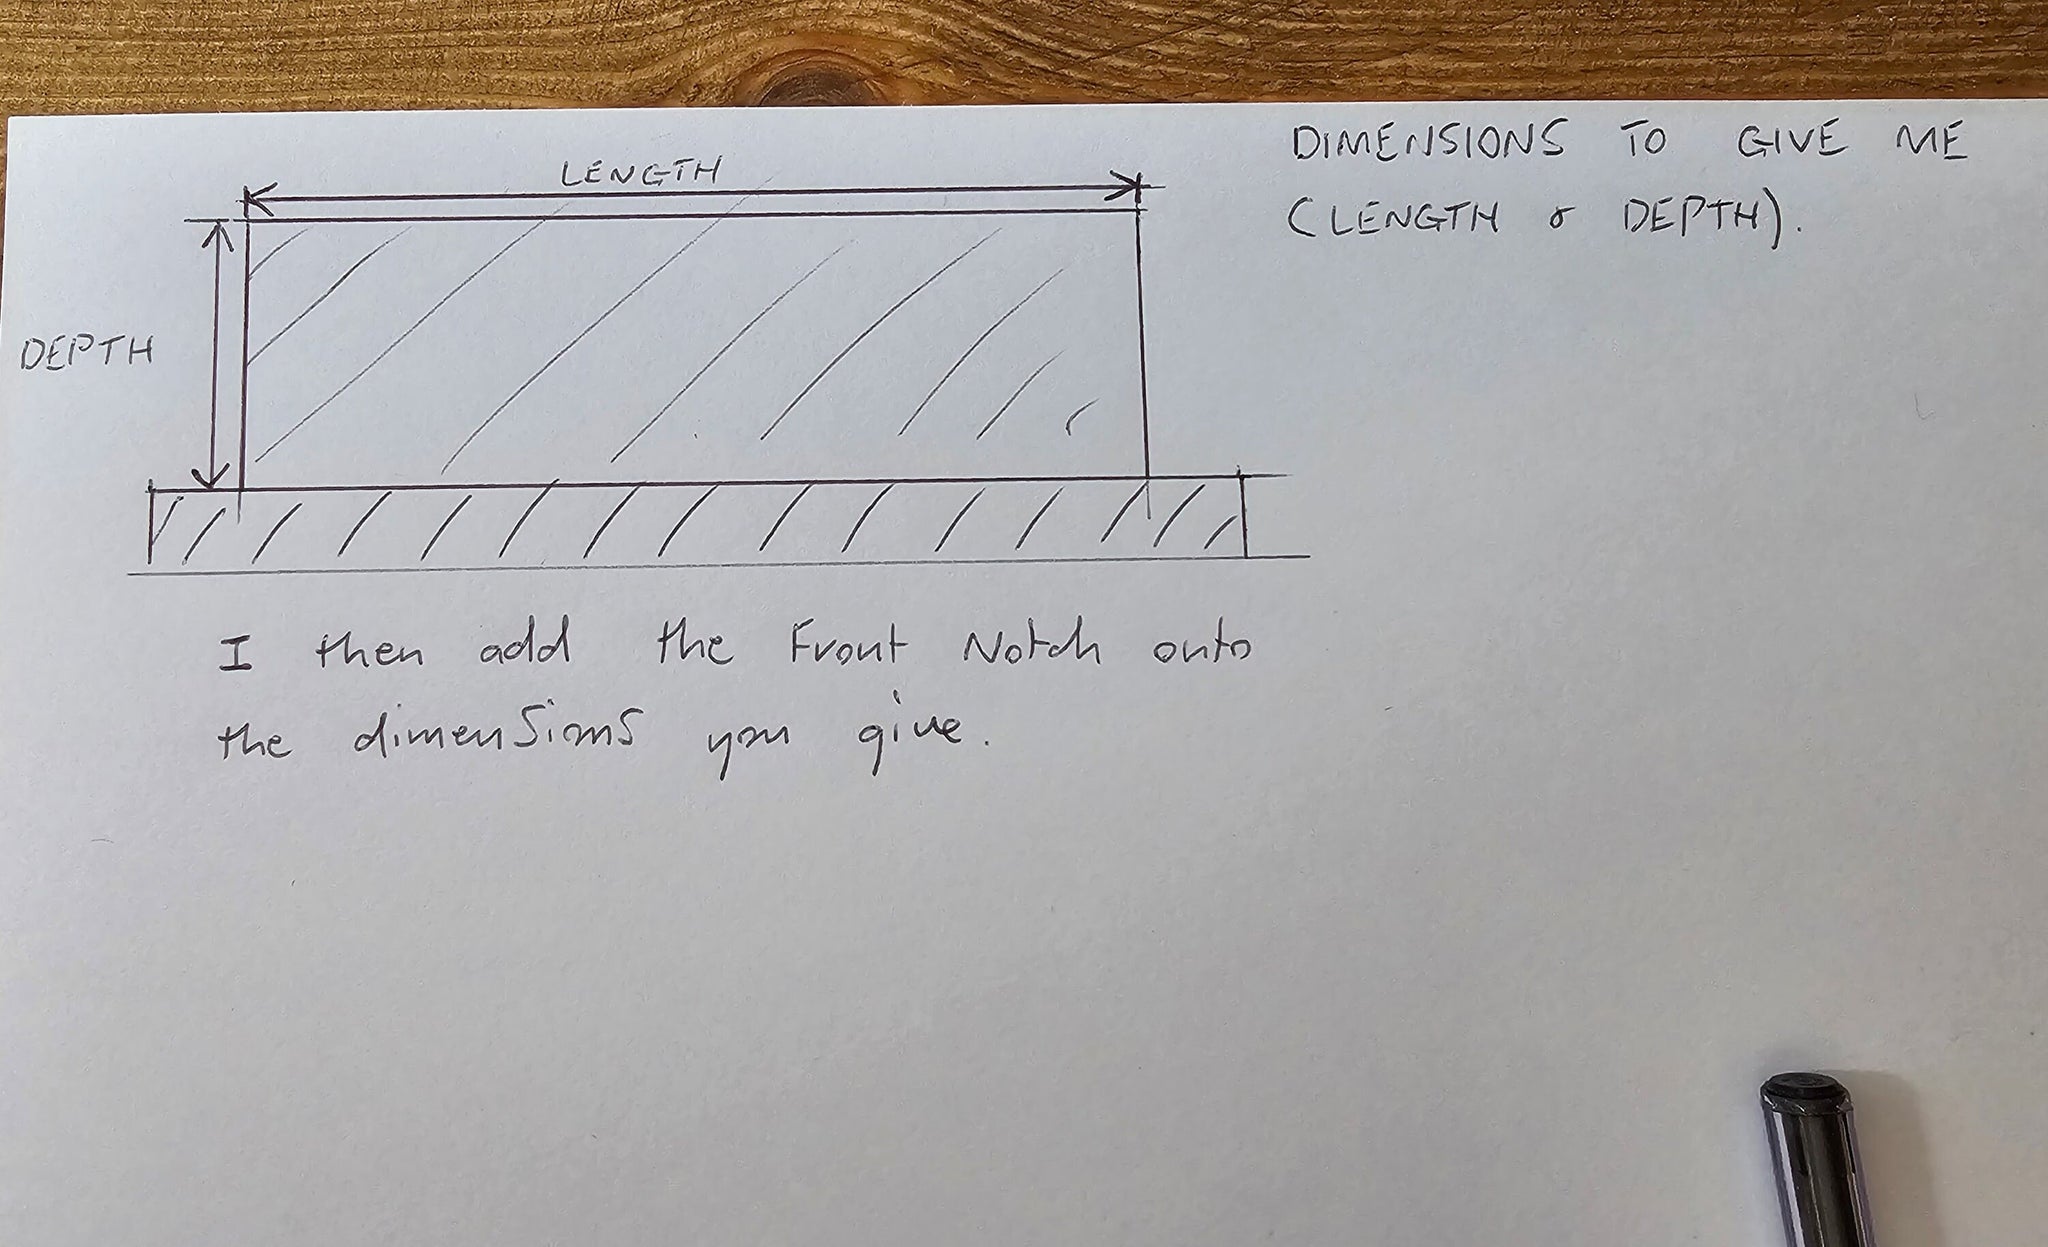 LENGTH
DIMENSIONS TO GIVE ME
(LENGTH & DEPTH).
DEPTH
I then add the Front Notch onto
the dimensions you give.